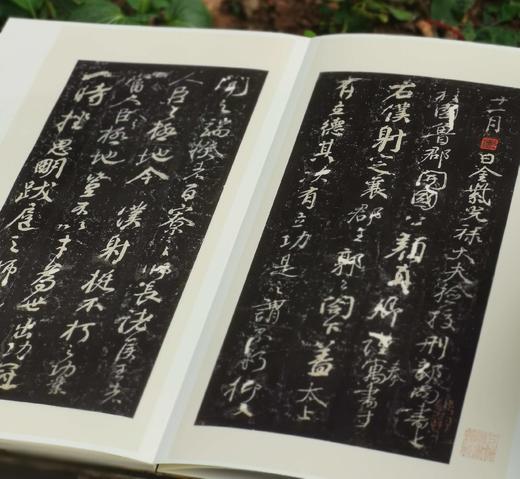 十一月 日金紫光祿大夫檢校刑部尚書上
柱國魯郡開國公顏真卿謹奉書于
右僕射定襄郡王郭公閣下蓋太上
有立德其次有立功是之謂不朽抑又
聞之端揆者百寮之師長諸侯王者
人臣之極地今 僕射挺不朽之功業
當人臣極地豈不以才為世出功冠
一時挫思明跋扈之師